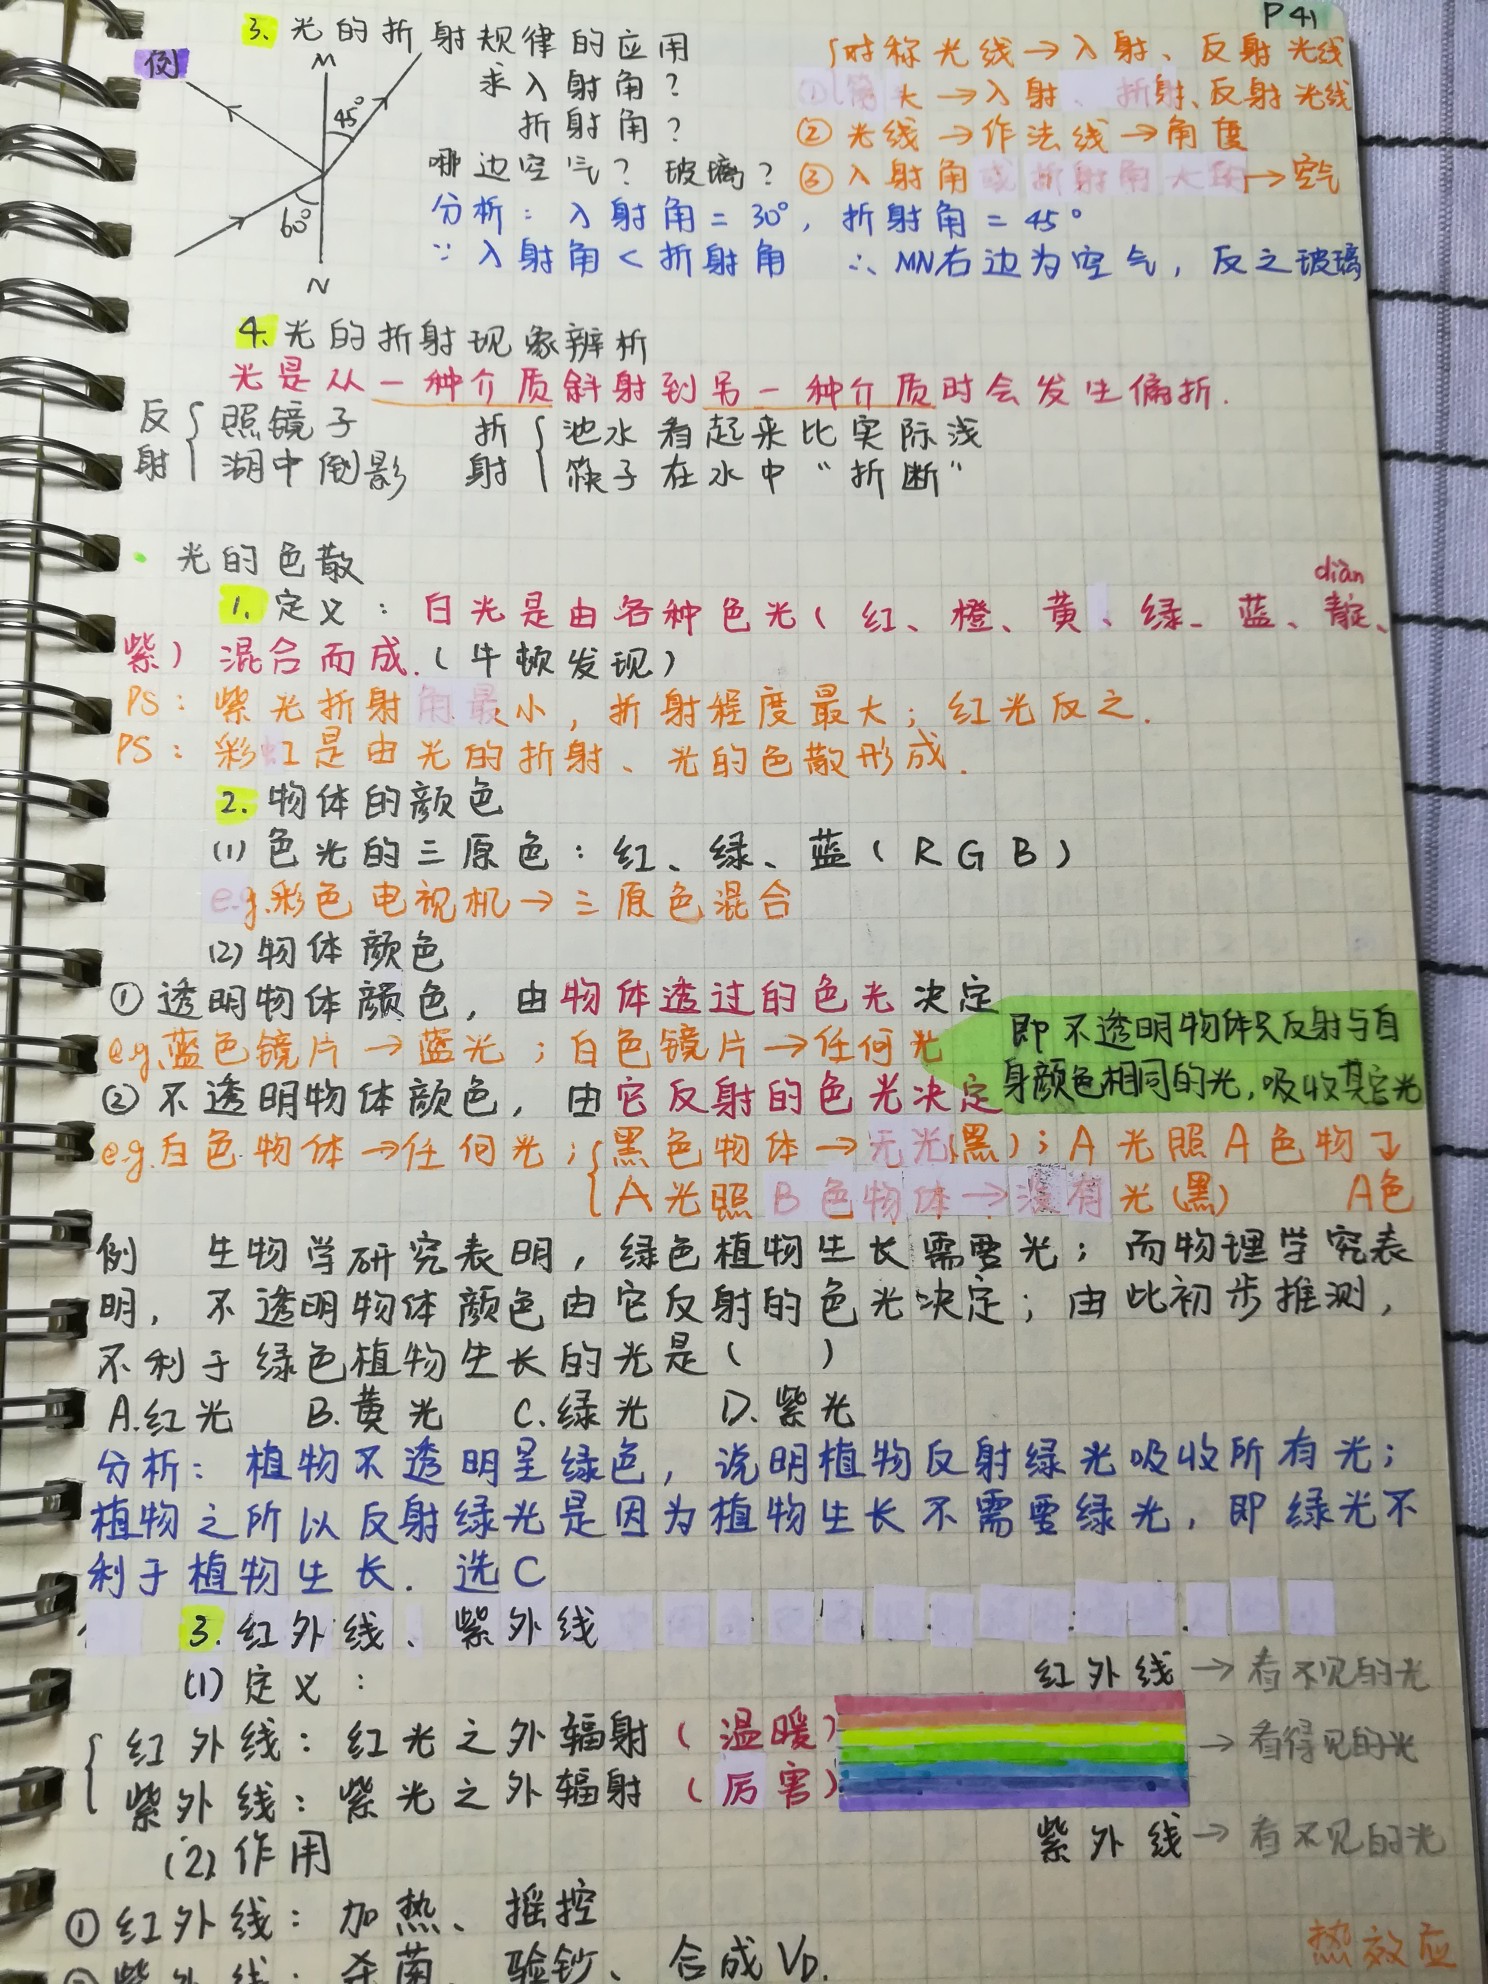 P41
3. 光的折射规律的应用
例
M
45°
60°
N
求入射角?
折射角?
哪边空气? 玻璃?
对称光线→入射、反射光线
→入射、折射、反射光线
② 光线→作法线→角度
③ 入射角或折射角大的→空气
分析: 入射角=30°, 折射角=45°
∵入射角<折射角 ∴MN右边为空气, 反之玻璃
4. 光的折射现象辨析
光是从一种介质斜射到另一种介质时会发生偏折.
反射 { 照镜子 折射 { 池水看起来比实际浅
湖中倒影 筷子在水中“折断”
· 光的色散
diàn
1. 定义: 白光是由各种色光(红、橙、黄、绿、蓝、靛、
紫)混合而成.(牛顿发现)
PS: 紫光折射角最小, 折射程度最大; 红光反之.
PS: 彩虹是由光的折射、光的色散形成.
2. 物体的颜色
(1) 色光的三原色: 红、绿、蓝(RGB)
e.g.彩色电视机→三原色混合
(2) 物体颜色
① 透明物体颜色, 由物体透过的色光决定
e.g.蓝色镜片→蓝光; 白色镜片→任何光
即不透明物体只反射与自
身颜色相同的光, 吸收其它光
② 不透明物体颜色, 由它反射的色光决定
e.g.白色物体→任何光; { 黑色物体→无光(黑); A光照A色物
A光照B色物体→没有光(黑) A色
例 生物学研究表明, 绿色植物生长需要光; 而物理学究表
明, 不透明物体颜色由它反射的色光决定; 由此初步推测,
不利于绿色植物生长的光是( )
A.红光 B.黄光 C.绿光 D.紫光
分析: 植物不透明呈绿色, 说明植物反射绿光吸收所有光;
植物之所以反射绿光是因为植物生长不需要绿光, 即绿光不
利于植物生长. 选C
3. 红外线、紫外线
(1) 定义:
红外线→看不见的光
{ 红外线: 红光之外辐射(温暖)
→看得见的光
紫外线: 紫光之外辐射(厉害)
紫外线→看不见的光
(2) 作用
① 红外线: 加热、摇控
热效应
② 紫外线: 杀菌、验钞、合成VD.